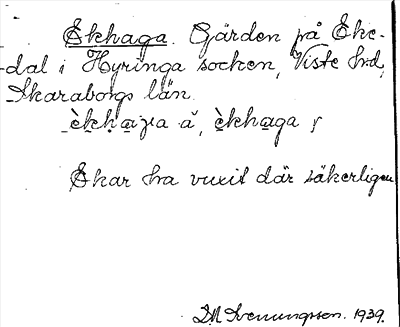 Ekhaga. Gärden på Eke-
dal i Hyringa socken, Viste hrd,
Skaraborgs län.
èkhaga ă, èkhaga ;
Ekar ha vuxit där säkerligen
1939.